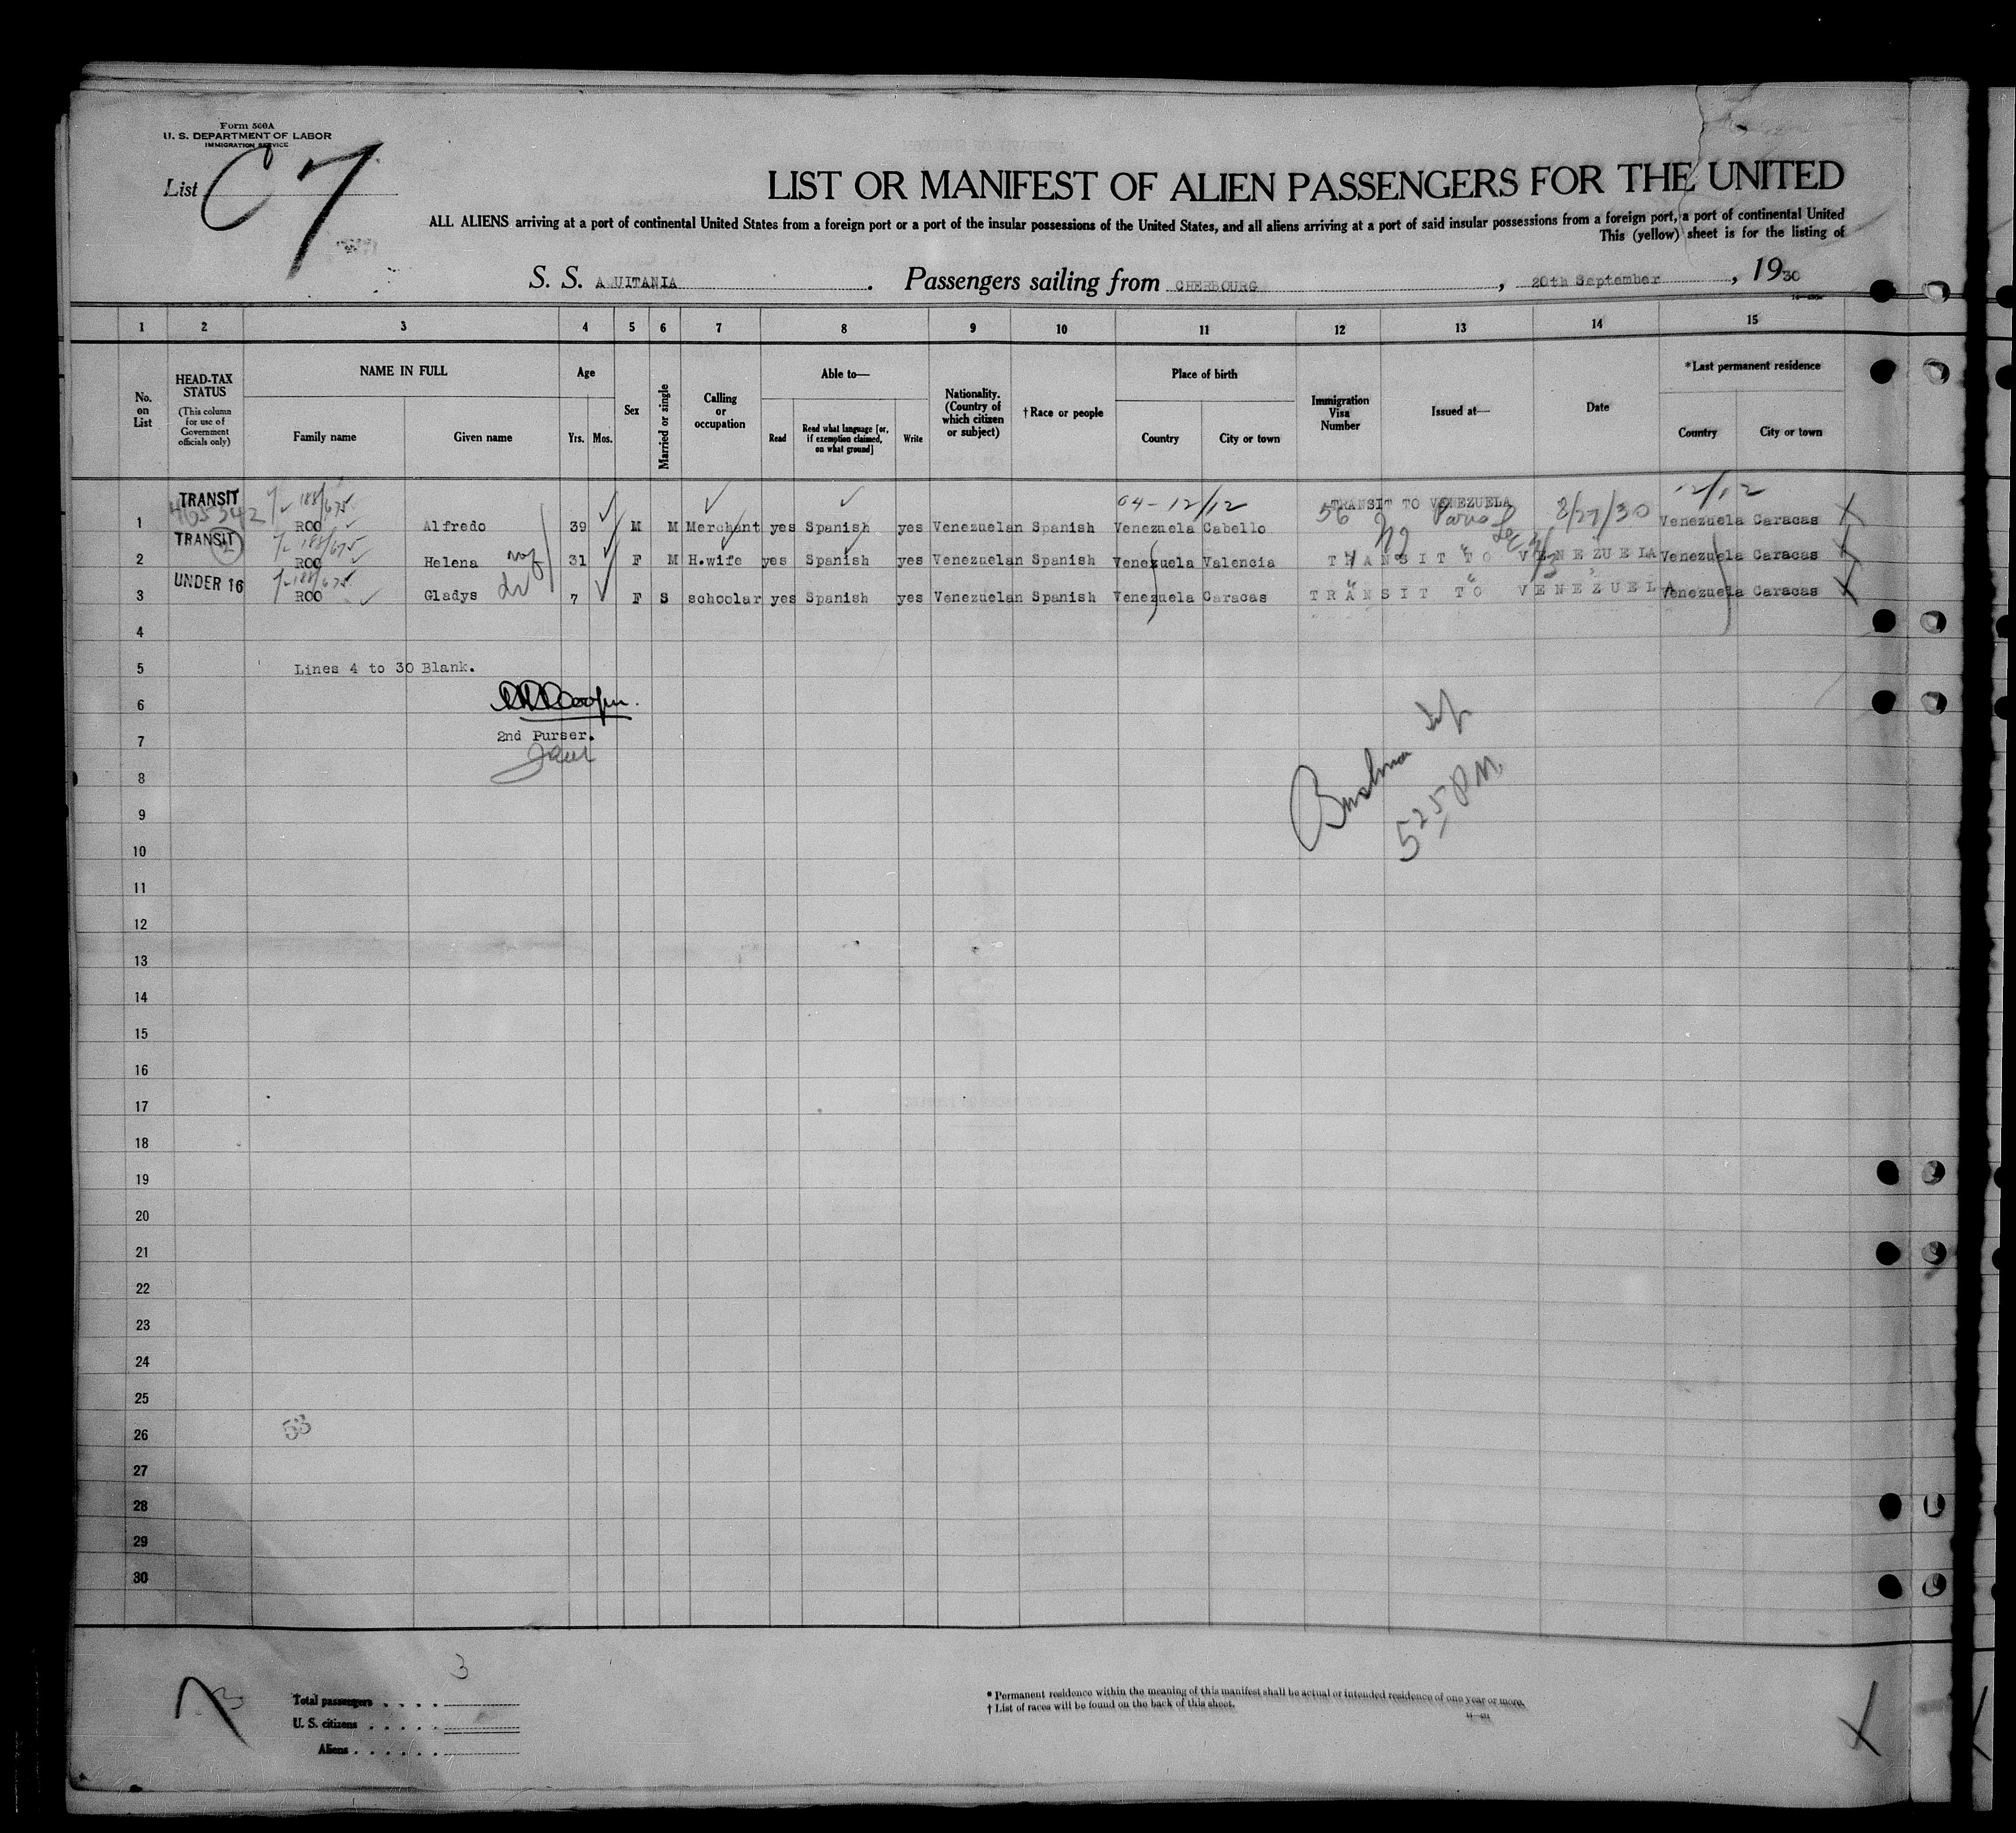 Form 500A
U. S. DEPARTMENT OF LABOR
IMMIGRATION SERVICE
List C 7
LIST OR MANIFEST OF ALIEN PASSENGERS FOR THE UNITED
ALL ALIENS arriving at a port of continental United States from a foreign port or a port of the insular possessions of the United States, and all aliens arriving at a port of said insular possessions from a foreign port, a port of continental United
This (yellow) sheet is for the listing of
S. S. A UITANIA. Passengers sailing from CHERBOURG, 20th September, 1930
1 2 3 4 5 6 7 8 9 10 11 12 13 14 15
No. on List
HEAD-TAX STATUS (This column for use of Government officials only)
NAME IN FULL
Family name Given name
Age
Yrs. Mos.
Sex
Married or single
Calling or occupation
Able to—
Read
Read what language [or, if exemption claimed, on what ground]
Write
Nationality. (Country of which citizen or subject)
†Race or people
Place of birth
Country City or town
Immigration Visa Number
Issued at—
Date
*Last permanent residence
Country City or town
TRANSIT 188/675 04-12/12 TRANSIT TO VENEZUELA 12/12
1 465342 ROO Alfredo 39 M M Merchant yes Spanish yes Venezuelan Spanish Venezuela Cabello 56 Paris 8/27/30 Venezuela Caracas
TRANSIT 2 188/675
2 ROO Helena wf 31 F M H.wife yes Spanish yes Venezuelan Spanish Venezuela Valencia TRANSIT TO VENEZUELA Venezuela Caracas
UNDER 16 188/675
3 ROO Gladys 7 F S schoolar yes Spanish yes Venezuelan Spanish Venezuela Caracas TRANSIT TO VENEZUELA Venezuela Caracas
4
5 Lines 4 to 30 Blank.
6
7 2nd Purser.
8
9
5 25 PM
10
11
12
13
14
15
16
17
18
19
20
21
22
23
24
25
26 53
27
28
29
30
3
Total passengers
U. S. citizens
Aliens
* Permanent residence within the meaning of this manifest shall be actual or intended residence of one year or more.
† List of races will be found on the back of this sheet.